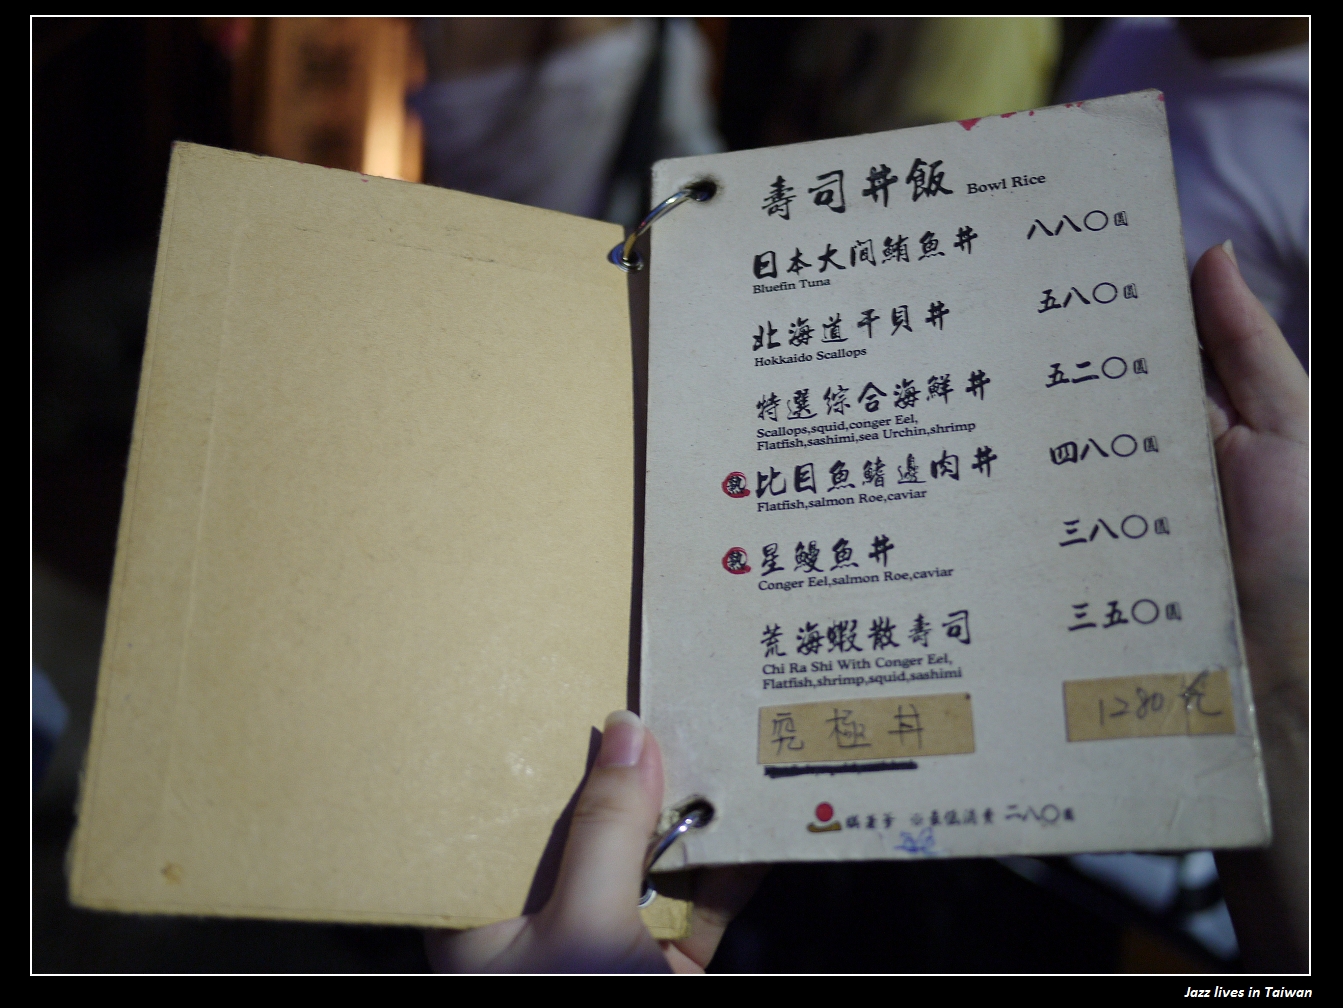 壽司丼飯 Bowl Rice
日本大间鮪魚丼 八八〇圓
Bluefin Tuna
北海道干貝丼 五八〇圓
Hokkaido Scallops
特選綜合海鮮丼 五二〇圓
Scallops,squid,conger Eel,
Flatfish,sashimi,sea Urchin,shrimp
熟 比目魚鰭邊肉丼 四八〇圓
Flatfish,salmon Roe,caviar
熟 星鰻魚丼 三八〇圓
Conger Eel,salmon Roe,caviar
荒海蝦散壽司 三五〇圓
Chi Ra Shi With Conger Eel,
Flatfish,shrimp,squid,sashimi
究極丼 1280元
※最低消費 二八〇圓
Jazz lives in Taiwan